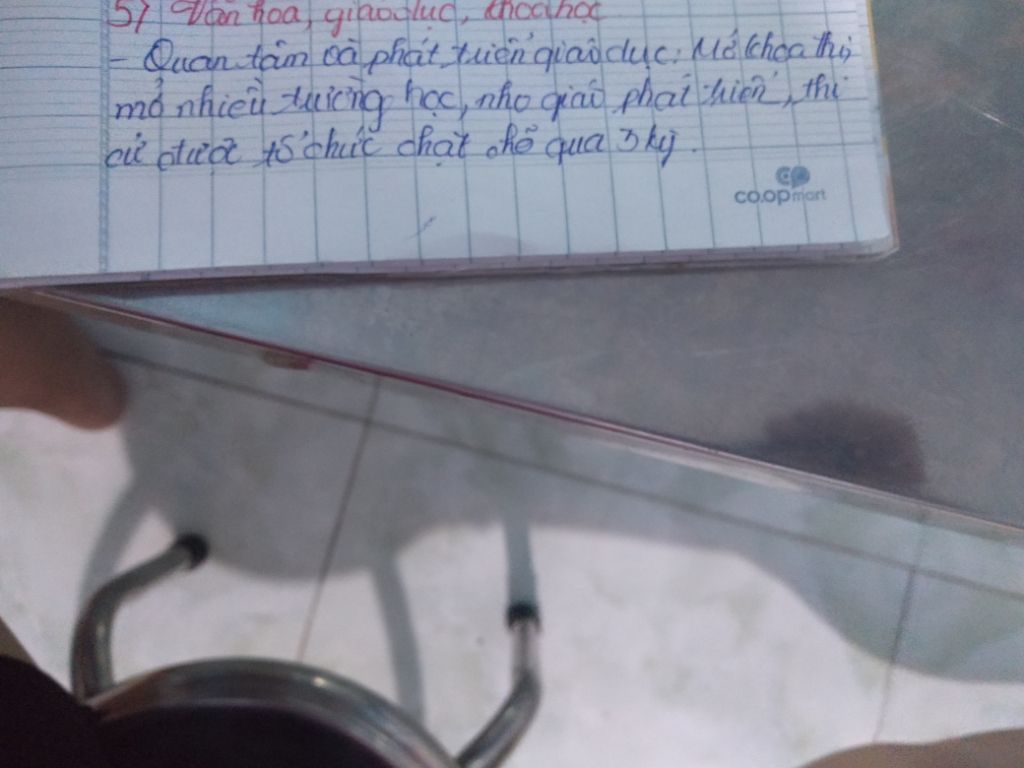 5) Văn hoa, giáo dục, khoa học
- Quan tâm và phát triển giáo dục: Mở khoa thi,
mở nhiều trường học, nho giáo phát triển, thi
cử được tổ chức chặt chẽ qua 3 kỳ.
co.opmart